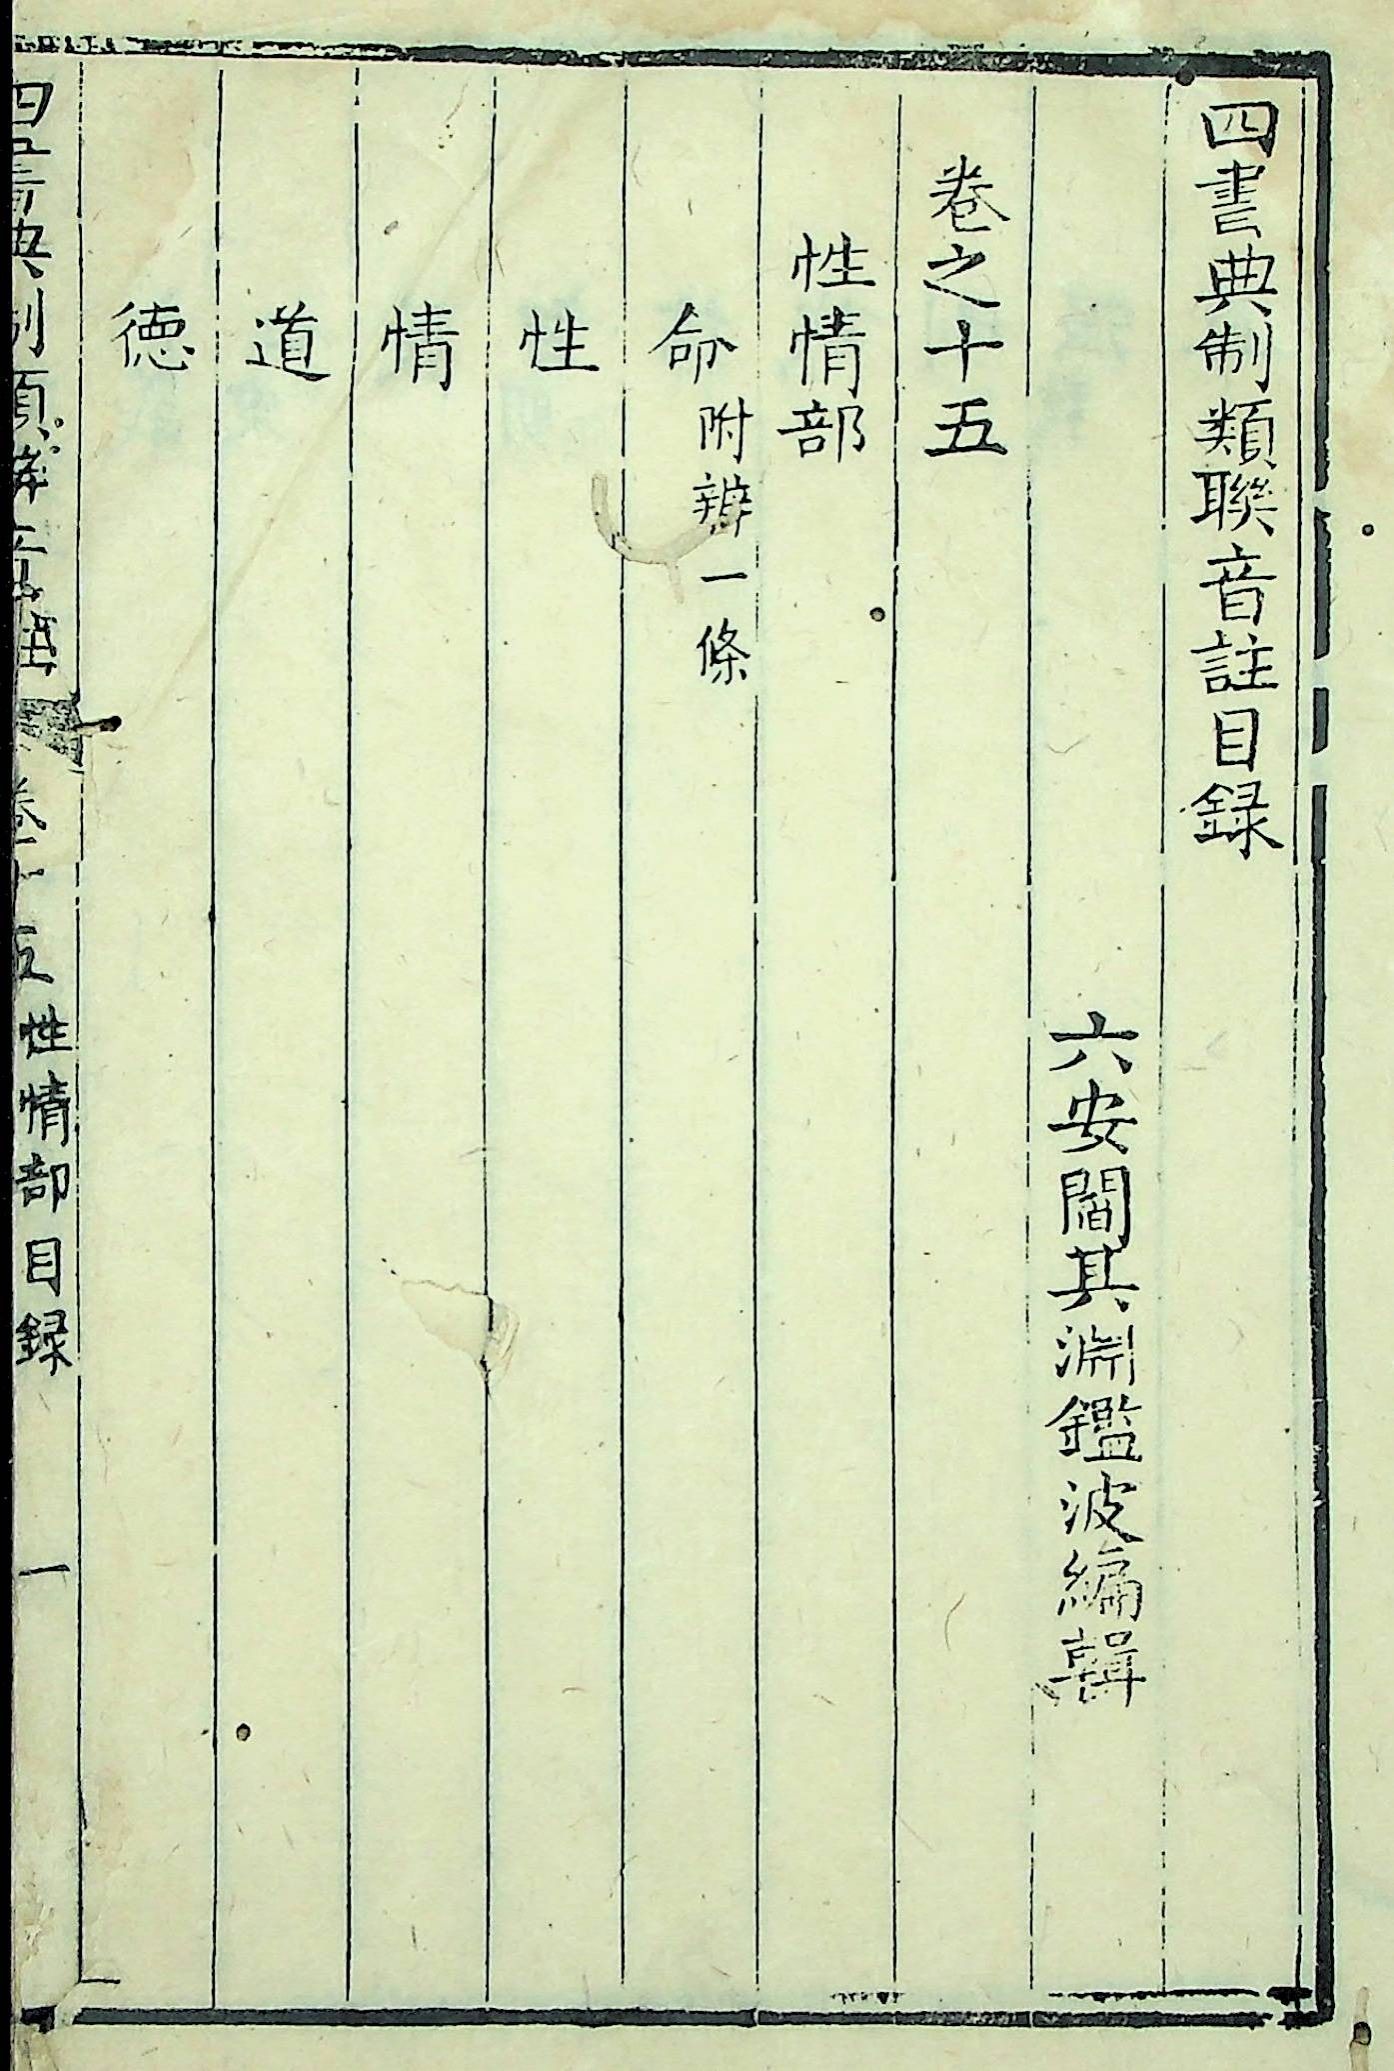 四書典制類聯音註目録
六安閻其淵鑑波編輯
卷之十五
性情部
命附辨一條
性
情
道
德
四書典制類聯音註 卷十五性情部目録 一